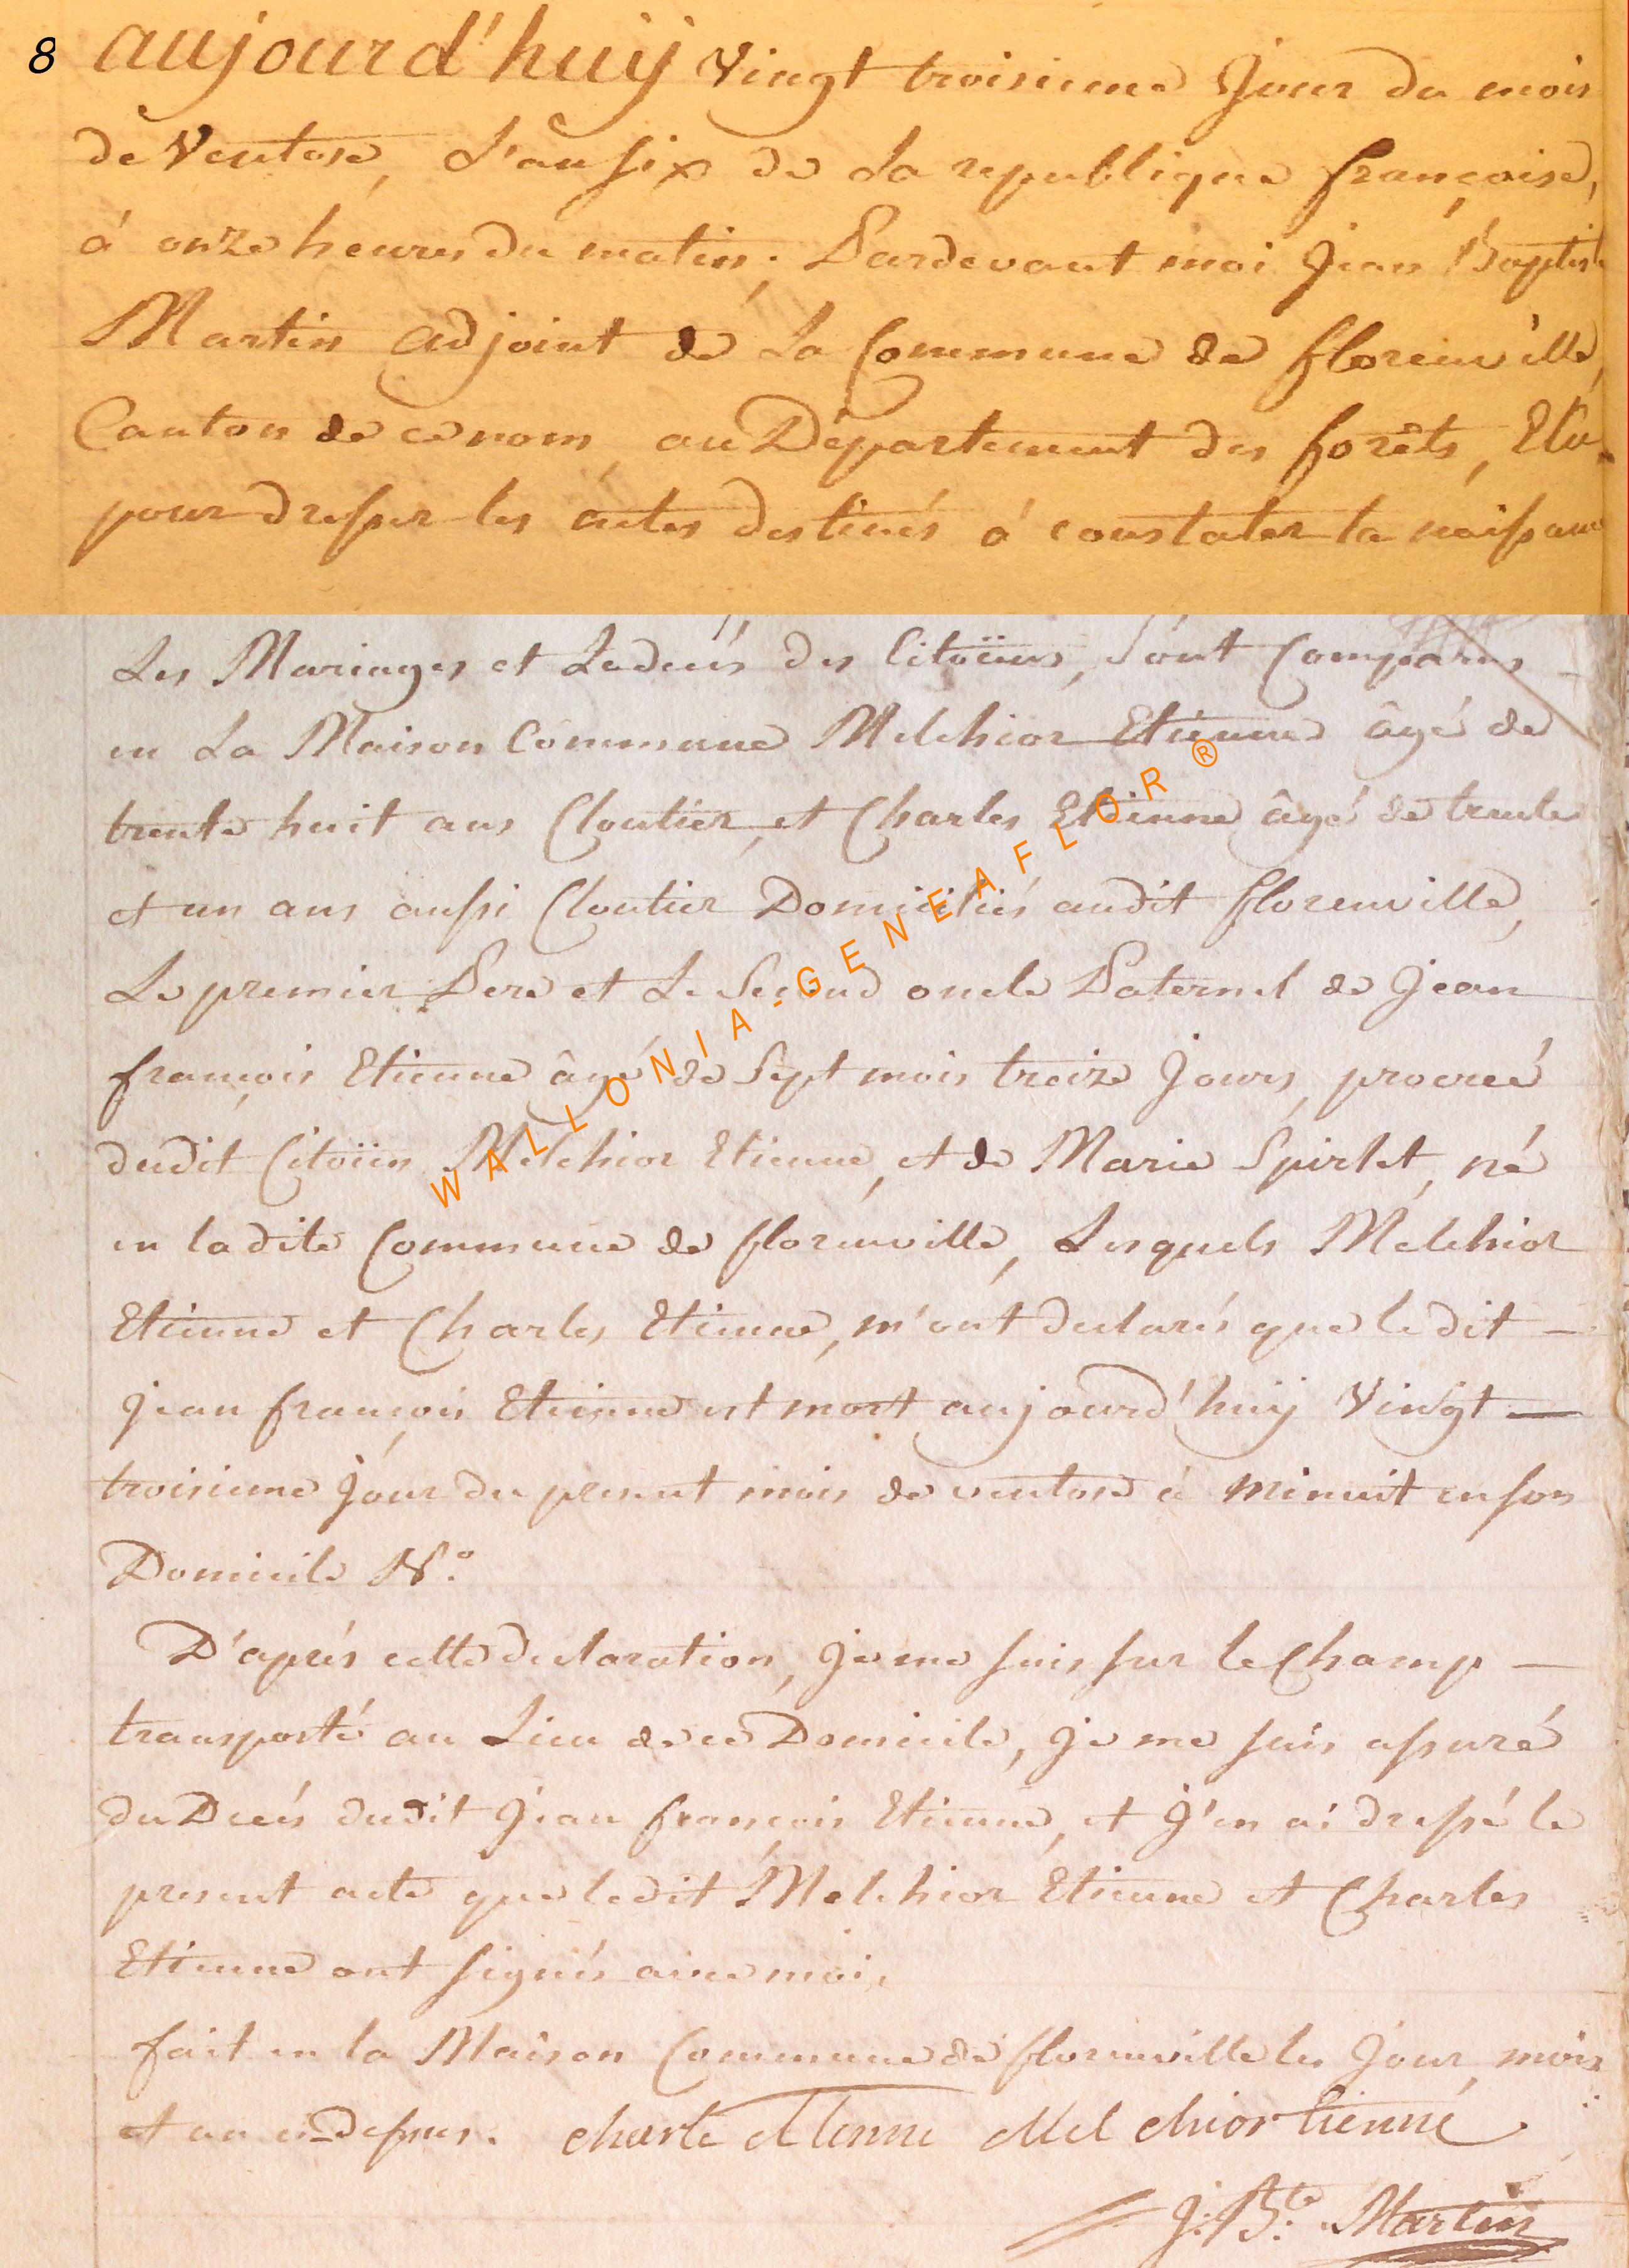 8 aujourd'huÿ Vingt troisieme Jour du mois
de Ventose, L'an six de La republique françoise,
á onze heures du matin; Pardevant moi Jean Baptiste
Martin adjoint de La Commune de florenville,
Canton de ce nom, au Département des forêts, Elu
pour dresser les actes destinés á constater la naissance
Les Mariages et Le decés des Citoïens, Sont Comparus
en La Maison Commune Melchior Etienne âgé de
trente huit ans Cloutier, et Charles Etienne âgé de trente
et un ans aussi Cloutier Domiciliés audit florenville,
Le premier Pere et Le Second oncle Paternel de Jean
françois Etienne âgé de Sept mois treize Jours, procreé
dudit Citoïen Melchior Etienne, et de Marie Spirlet, né
en ladite Commune de florenville, Lesquels Melchior
Etienne et Charles Etienne, m'ont declarés que ledit —
Jean françois Etienne est mort aujourd'huÿ Vingt —
troisieme Jour du present mois de ventose á minuit en son
Domicile N.°
D'aprés cette declaration, Je me suis sur le Champ —
transporté au Lieu de ce Domicile, Je me suis assuré
du Decés dudit Jean françois Etienne, et J'en ai dressé le
present acte que ledit Melchior Etienne et Charles
Etienne ont signés avec moi,
fait en la Maison Commune de florenville les Jour, mois
et an ci-dessus. charle etienne Mel chior tienne
J: B:te Martin
WALLONIA-GENEAFLOR ®